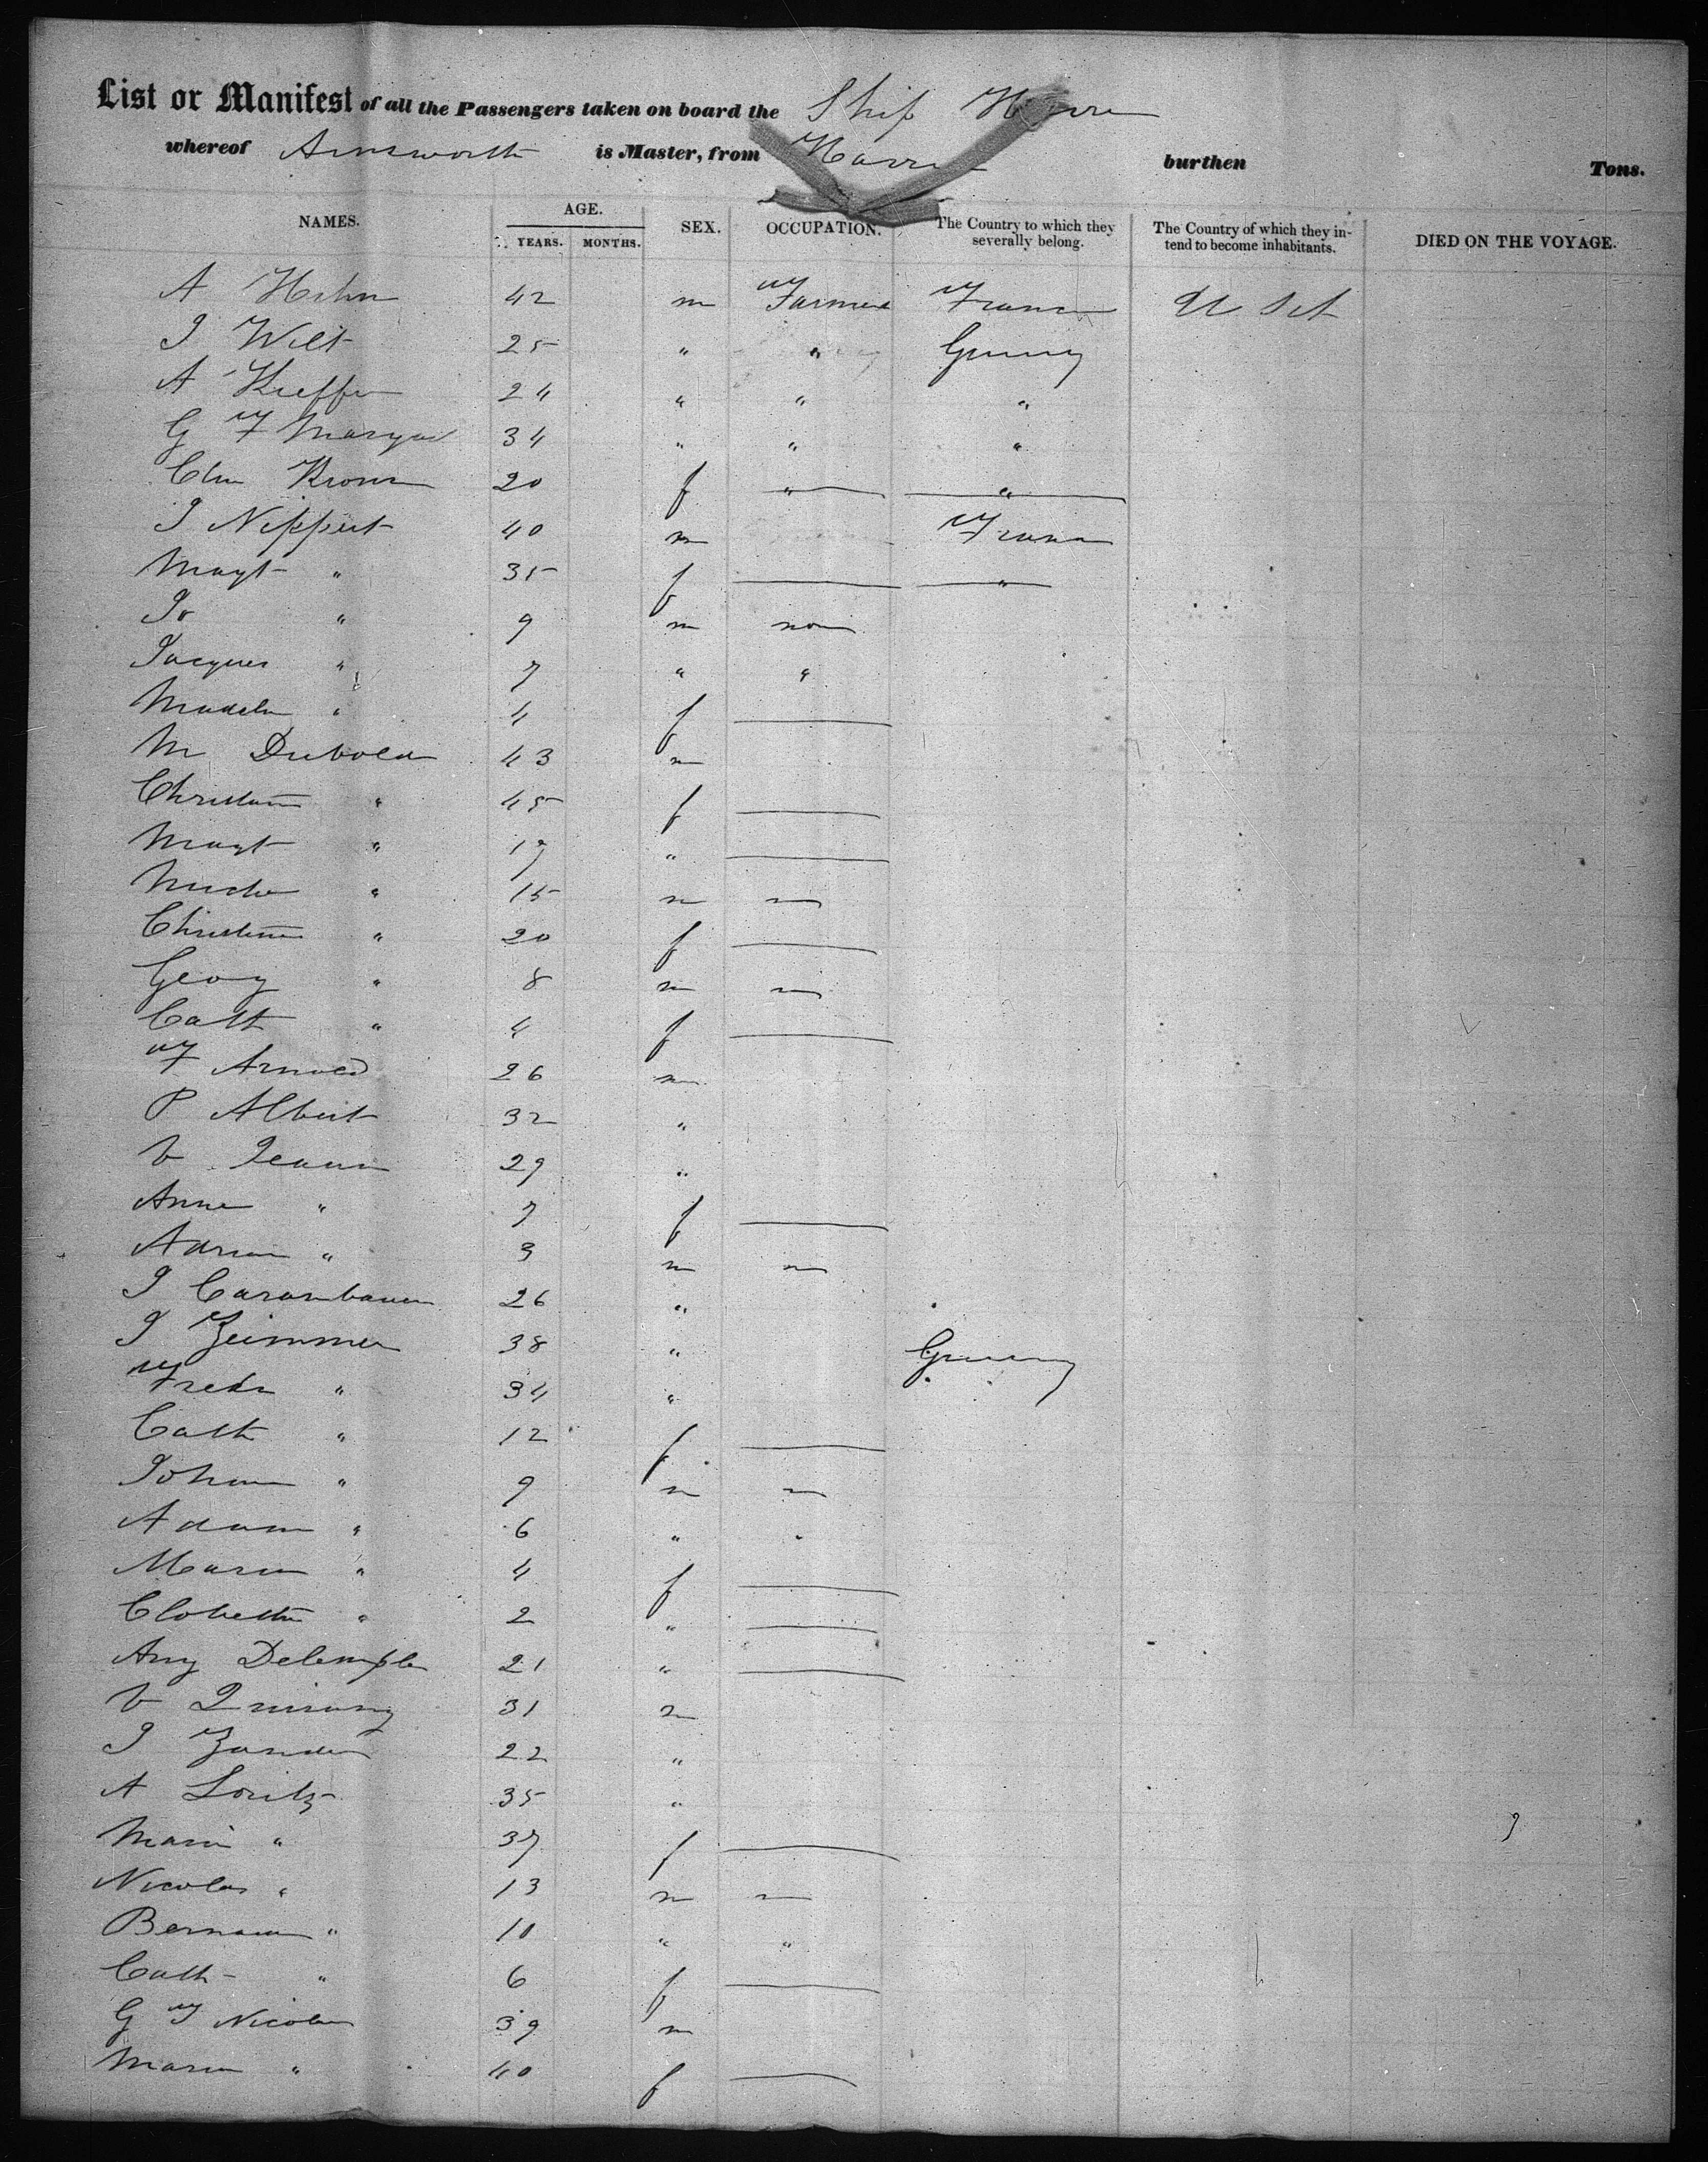 List or Manifest of all the Passengers taken on board the Ship Havre
whereof Ainsworth is Master, from Havre burthen Tons.
NAMES. AGE. YEARS. MONTHS. SEX. OCCUPATION. The Country to which they severally belong. The Country of which they intend to become inhabitants. DIED ON THE VOYAGE.
A Hehn 42 m Farmer France U St
J Wilt 25 " " Germy
A Kieffer 24 " " "
G F 34 " " "
Krom 20 f " "
J Nippert 40 m France
Magt " 35 f "
Jo " 9 m non
Jacques " 7 " "
Madeln " 4 f
M Dubold 43 m
Christian " 45 f
Magt " 17 "
" 15 m
Christine " 20 f
Georg " 8 m
Cath " 4 f
F Arnold 26 m
P Albert 32 "
V Jeann 29 "
Anne " 7 f
Adrian " 3 m
J 26 "
J Zeimmer 38 " Germy
Fredr " 34 "
Cath " 12 f
Johan " 9 m
Adam " 6 " "
Maria " 4 f
" 2 "
Delemple 21 "
V 31 m
J Zander 22 "
A Loritz 35 "
Marie " 37 f
Nicolas " 13 m
Bernard " 10 " "
Cath " 6 f
G F Nicolas 39 m
Maria " 40 f